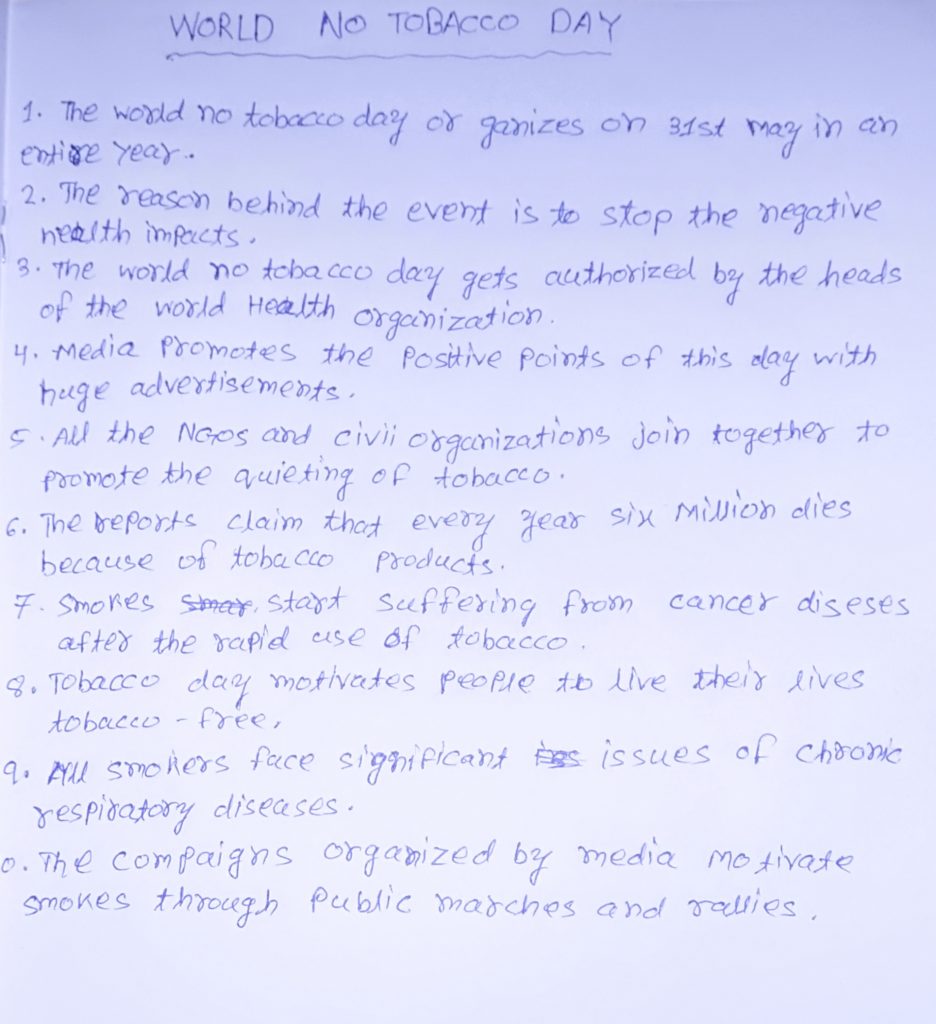 WORLD NO TOBACCO DAY
1. The world no tobacco day or ganizes on 31st may in an
entire year.
2. The reason behind the event is to stop the negative
health impacts.
3. The world no tobacco day gets authorized by the heads
of the world Health organization.
4. Media Promotes the Positive Points of this day with
huge advertisements.
5. All the NGOs and civii organizations join together to
promote the quieting of tobacco.
6. The reports claim that every year six Million dies
because of tobacco Products.
7. Smokes start suffering from cancer diseses
after the rapid use of tobacco.
8. Tobacco day motivates people to live their lives
tobacco - free.
9. All smokers face significant issues of chronic
respiratory diseases.
0. The compaigns organized by media motivate
smokes through Public marches and rallies.